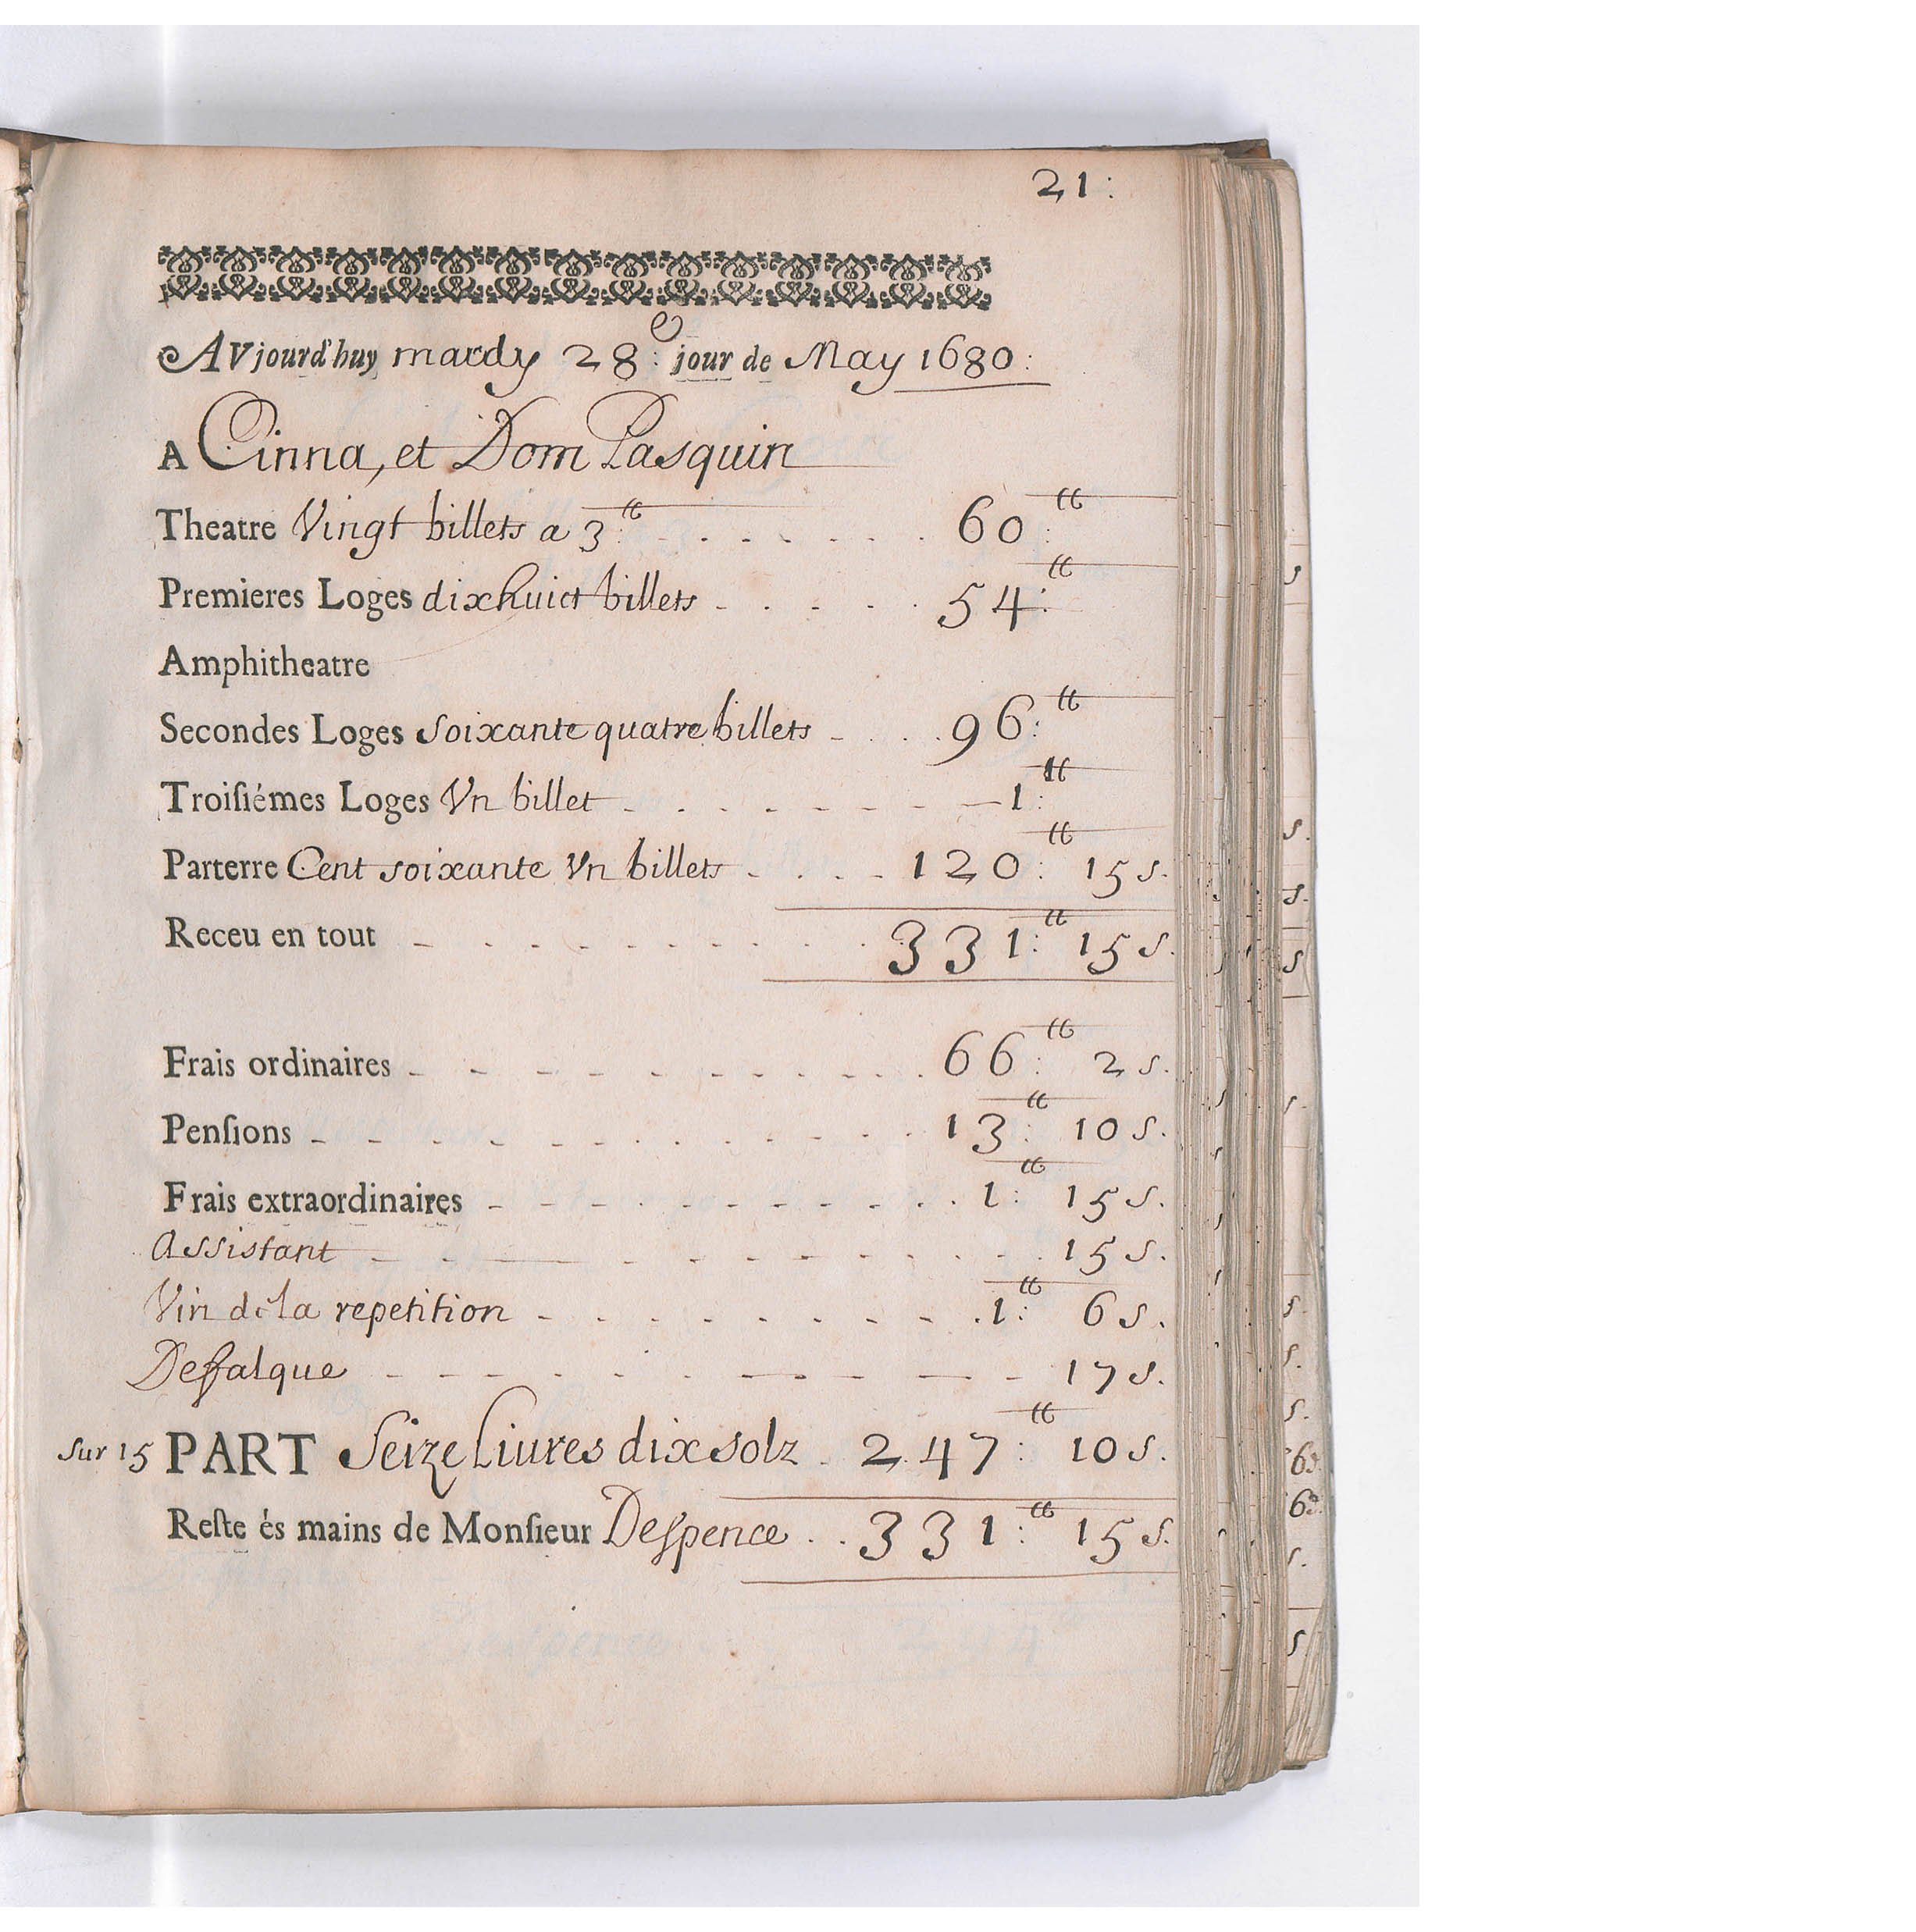 21:
AVjourd'huy mardy 28:e jour de May 1680:
A Cinna, et Dom Pasquin
Theatre Vingt billets a 3:tt . . . . . . 60:tt
Premieres Loges dixhuict billets - . . . . 54:tt
Amphitheatre
Secondes Loges soixante quatre billets - . . . 96:tt
Troisiémes Loges Vn billet - . . . - - - - 1:tt
Parterre Cent soixante Vn billets - . . . - 120:tt 15 s.
Receu en tout - . . . . . . . 331:tt 15 s.
Frais ordinaires - - - - - - - . . . . 66:tt 2 s.
Pensions - - - - - . . . . . . 13:tt 10 s.
Frais extraordinaires - - - - - - - - . . 1:tt 15 s.
Assistant - . - . . . . . . 15 s.
Vin de la repetition - . . . . . . . . 1:tt 6 s.
Deffalque - - - . . . - - - 17 s.
Sur 15 PART Seize Liures dix solz . 247:tt 10 s.
Reste és mains de Monsieur Despence . . 331:tt 15 s.